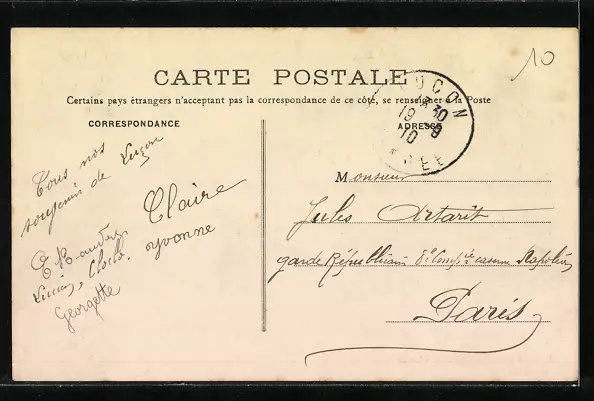 10
CARTE POSTALE
Certains pays étrangers n'acceptant pas la correspondance de ce côté, se renseigner à la Poste
CORRESPONDANCE
ADRESSE
LUÇON
30
19 8
10
VENDÉE
Tous nos
souvenirs de Luçon
Claire
yvonne
Lucien, Cloclo.
Georgette
Monsieur
Jules Artarit
garde Républicain 8e Compie caserne Napoléon
Paris